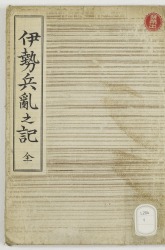 伊勢兵亂之記 全